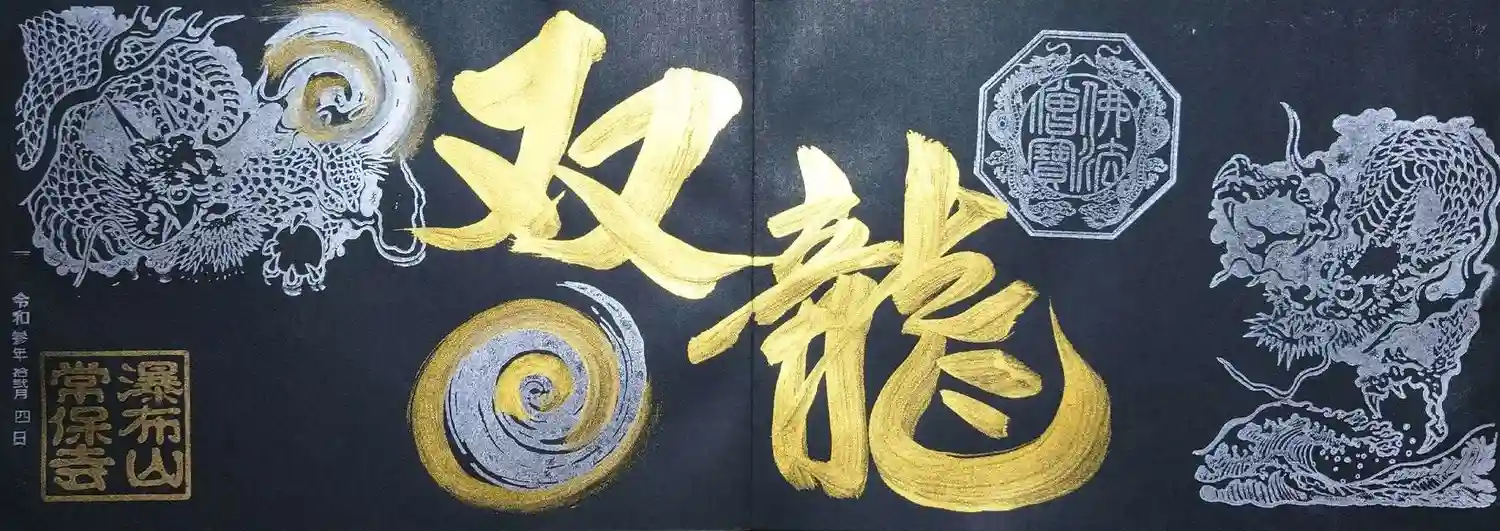 双龍
佛法
僧寶
令和参年拾弐月四日
瀑布山
常保寺